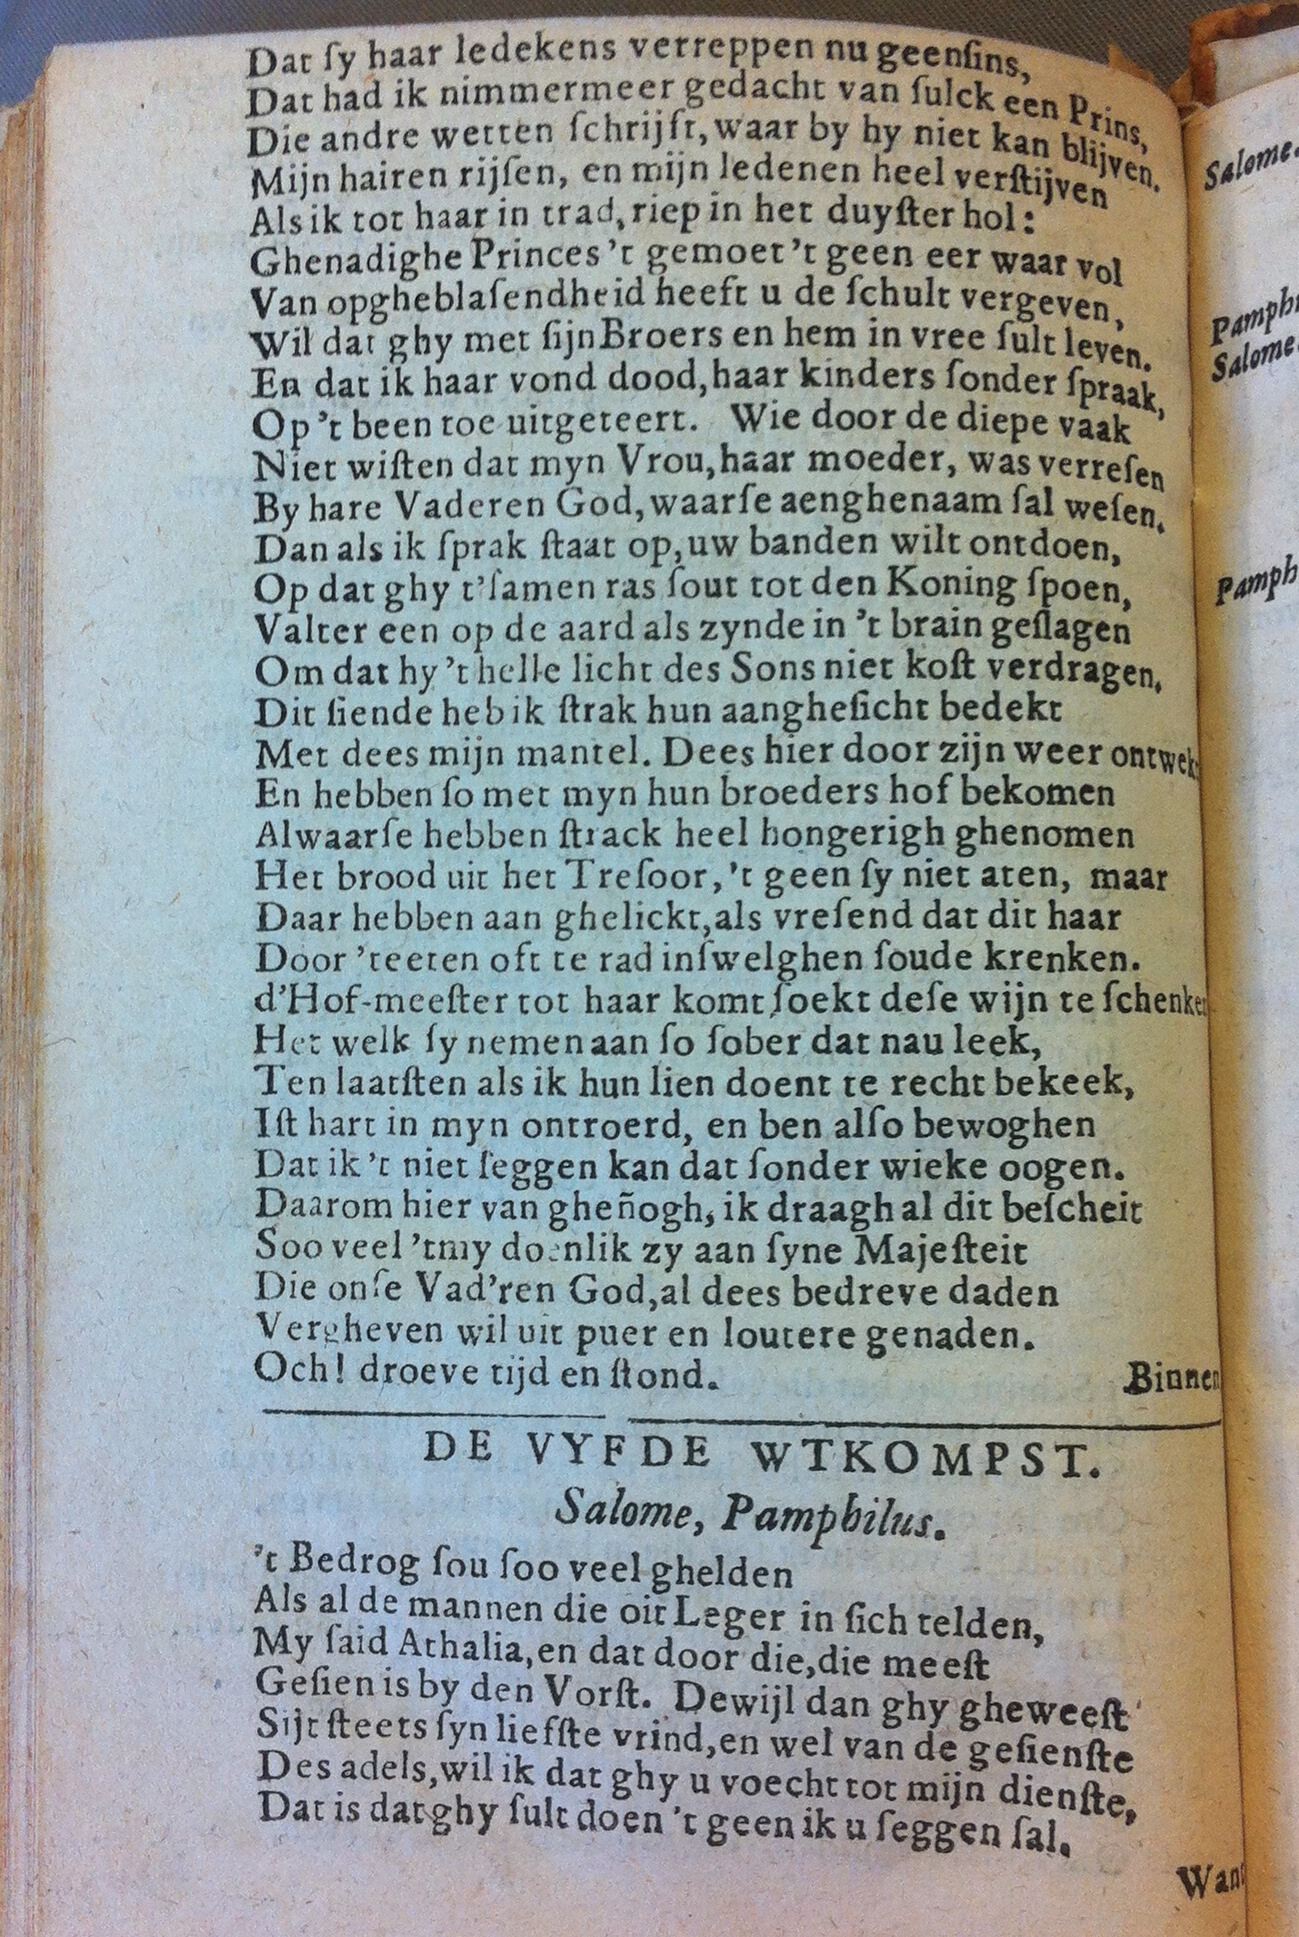 Dat ſy haar ledekens verreppen nu geenſins,
Dat had ik nimmermeer gedacht van ſulck een Prins,
Die andre wetten ſchrijft, waar by hy niet kan blijven.
Mijn hairen rijſen, en mijn ledenen heel verſtijven
Als ik tot haar in trad, riep in het duyſter hol:
Ghenadighe Princes 't gemoet 't geen eer waar vol
Van opgheblaſendheid heeft u de ſchult vergeven,
Wil dat ghy met ſijn Broers en hem in vree ſult leven.
En dat ik haar vond dood, haar kinders ſonder ſpraak,
Op 't been toe uitgeteert. Wie door de diepe vaak
Niet wiſten dat myn Vrou, haar moeder, was verreſen
By hare Vaderen God, waarſe aenghenaam ſal weſen.
Dan als ik ſprak ſtaat op, uw banden wilt ontdoen,
Op dat ghy t'ſamen ras ſout tot den Koning ſpoen,
Valter een op de aard als zynde in 't brain geſlagen
Om dat hy 't helle licht des Sons niet koſt verdragen,
Dit ſiende heb ik ſtrak hun aangheſicht bedekt
Met dees mijn mantel. Dees hier door zijn weer ontwek
En hebben ſo met myn hun broeders hof bekomen
Alwaarſe hebben ſtrack heel hongerigh ghenomen
Het brood uit het Treſoor, 't geen ſy niet aten, maar
Daar hebben aan ghelickt, als vreſend dat dit haar
Door 'teeten oft te rad inſwelghen ſoude krenken.
d'Hof-meeſter tot haar komt, ſoekt deſe wijn te ſchenken
Het welk ſy nemen aan ſo ſober dat nau leek,
Ten laatſten als ik hun lien doent te recht bekeek,
Iſt hart in myn ontroerd, en ben alſo bewoghen
Dat ik 't niet ſeggen kan dat ſonder wieke oogen.
Daarom hier van gheñogh, ik draagh al dit beſcheit
Soo veel 'tmy doenlik zy aan ſyne Majeſteit
Die onſe Vad'ren God, al dees bedreve daden
Vergheven wil uit puer en loutere genaden.
Och! droeve tijd en ſtond. Binnen
DE VYFDE WTKOMPST.
Salome, Pamphilus.
't Bedrog ſou ſoo veel ghelden
Als al de mannen die oit Leger in ſich telden,
My ſaid Athalia, en dat door die, die meeſt
Geſien is by den Vorſt. Dewijl dan ghy gheweeſt
Sijt ſteets ſyn liefſte vrind, en wel van de geſienſte
Des adels, wil ik dat ghy u voecht tot mijn dienſte,
Dat is dat ghy ſult doen 't geen ik u ſeggen ſal.
Want
Salome.
Pamph
Salome.
Pamph